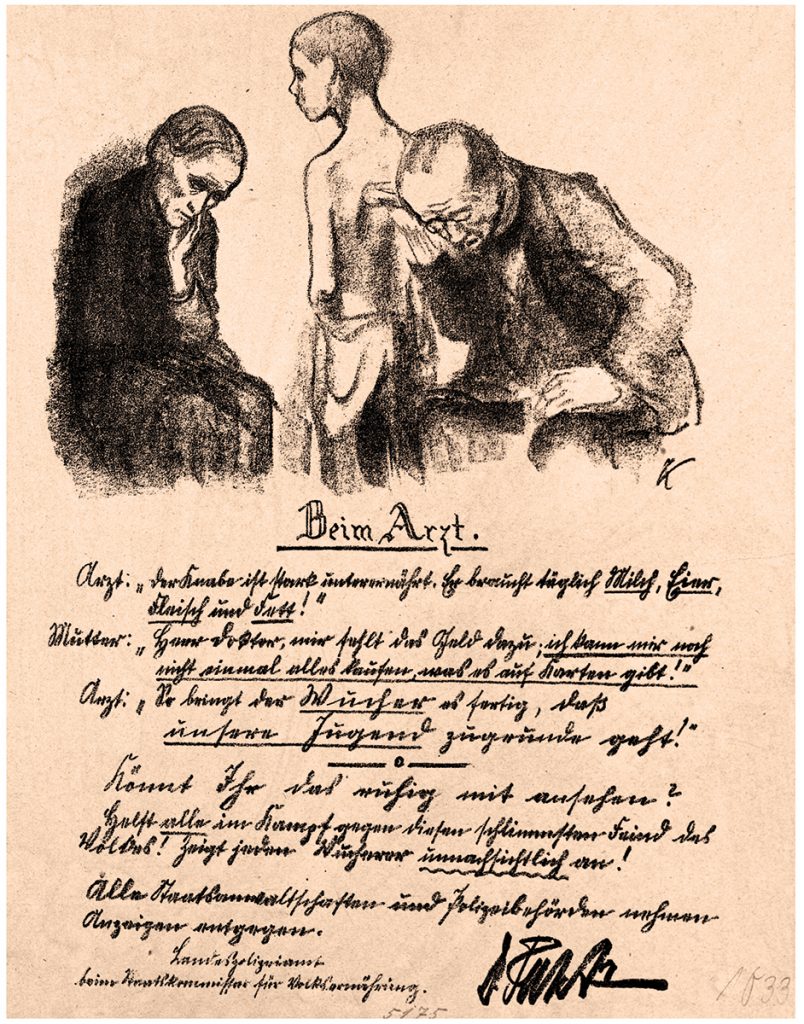 Beim Arzt.
Arzt: „Der Knabe ist stark unterernährt. Er braucht täglich Milch, Eier,
Fleisch und Fett!"
Mutter: „Herr Doktor, mir fehlt das Geld dazu; ich kann mir noch
nicht einmal alles kaufen, was es auf Karten gibt!"
Arzt: „So bringt der Wucher es fertig, daß
unsere Jugend zugrunde geht!"
Könnt Ihr das ruhig mit ansehen?
Helft alle im Kampf gegen diesen schlimmsten Feind des
Volkes! Zeigt jeden Wucherer unnachsichtlich an!
Alle Staatsanwaltschaften und Polizeibehörden nehmen
Anzeigen entgegen.
Landespolizeiamt
beim Staatskommissar für Volksernährung.
5175